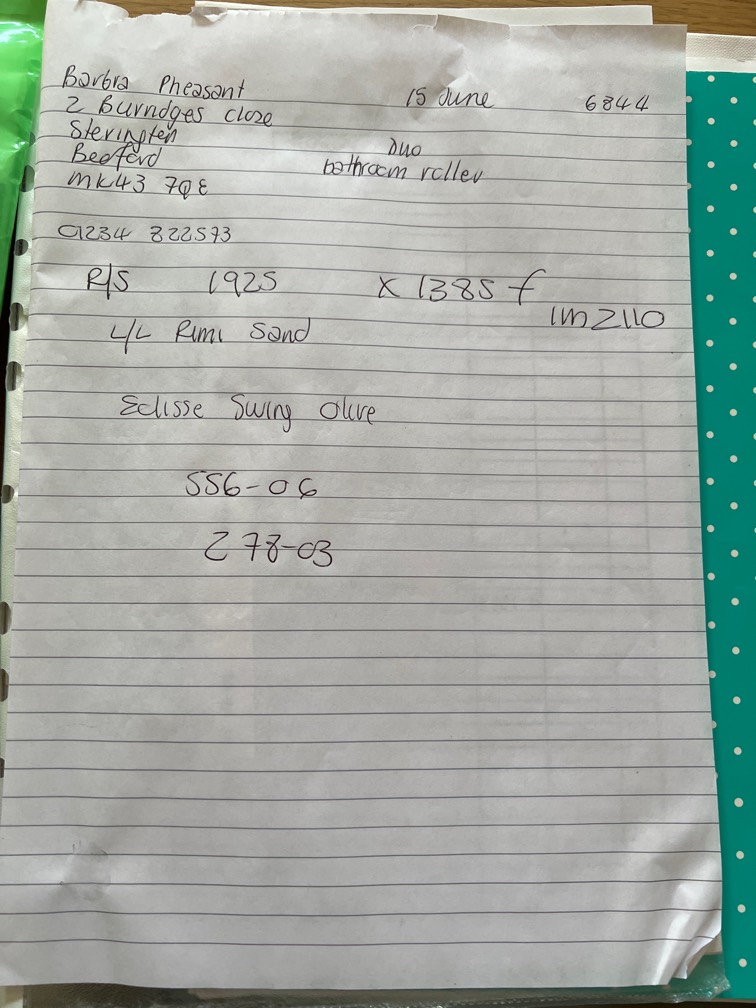 Barbra Pheasant 15 June 6844
2 Burndges close
Stevington
Bedford Duo
mk43 7QE bathroom roller
01234 822573
R/S 1925 x 1385 f
1m2110
L/L Rimi Sand
Eclisse Swing Olive
556-06
278-03